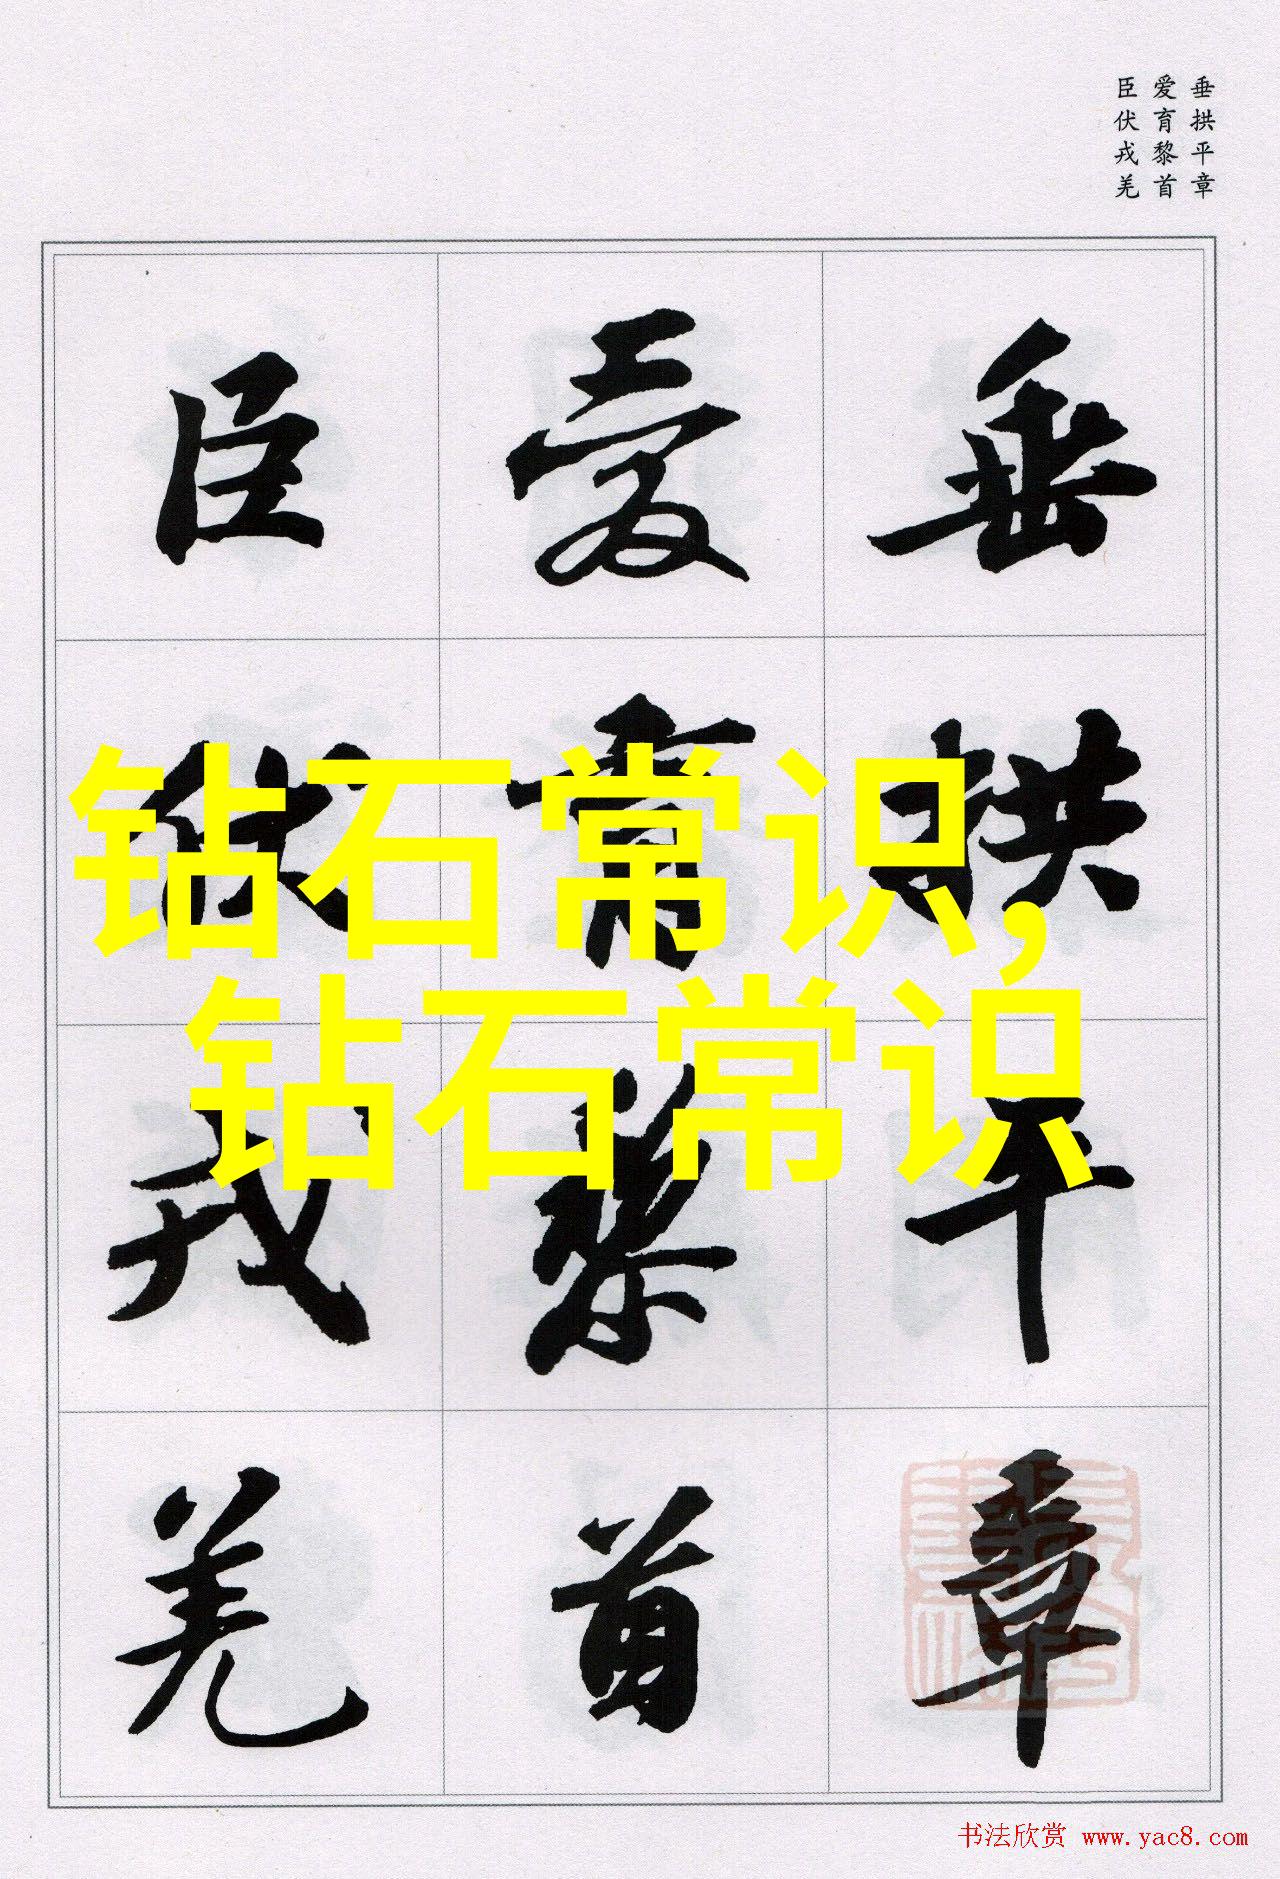 垂拱平章
爱育黎首
臣伏戎羌
垂拱平章
爱育黎首
臣伏戎羌
钻石常识,
钻石常识
书法欣赏 www.yac8.com